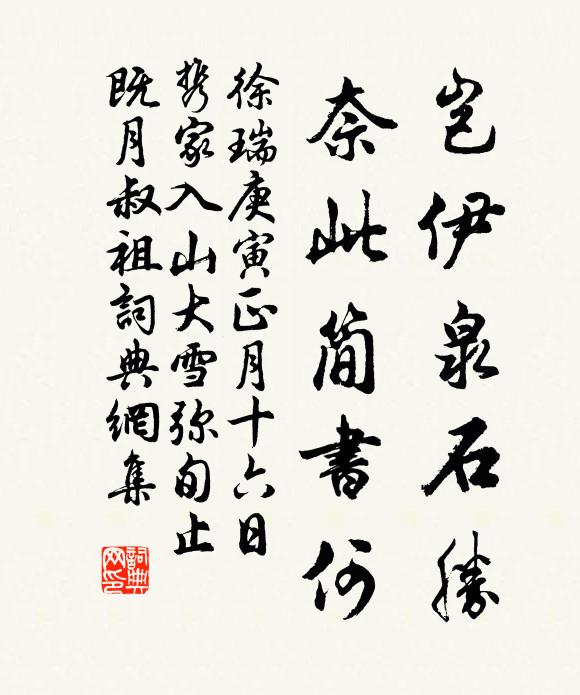 豈伊泉石勝
奈此簡書何
徐瑞庚寅正月十六日
携家入山大雪弥旬止
既月叔祖詞典網集
詞典网印